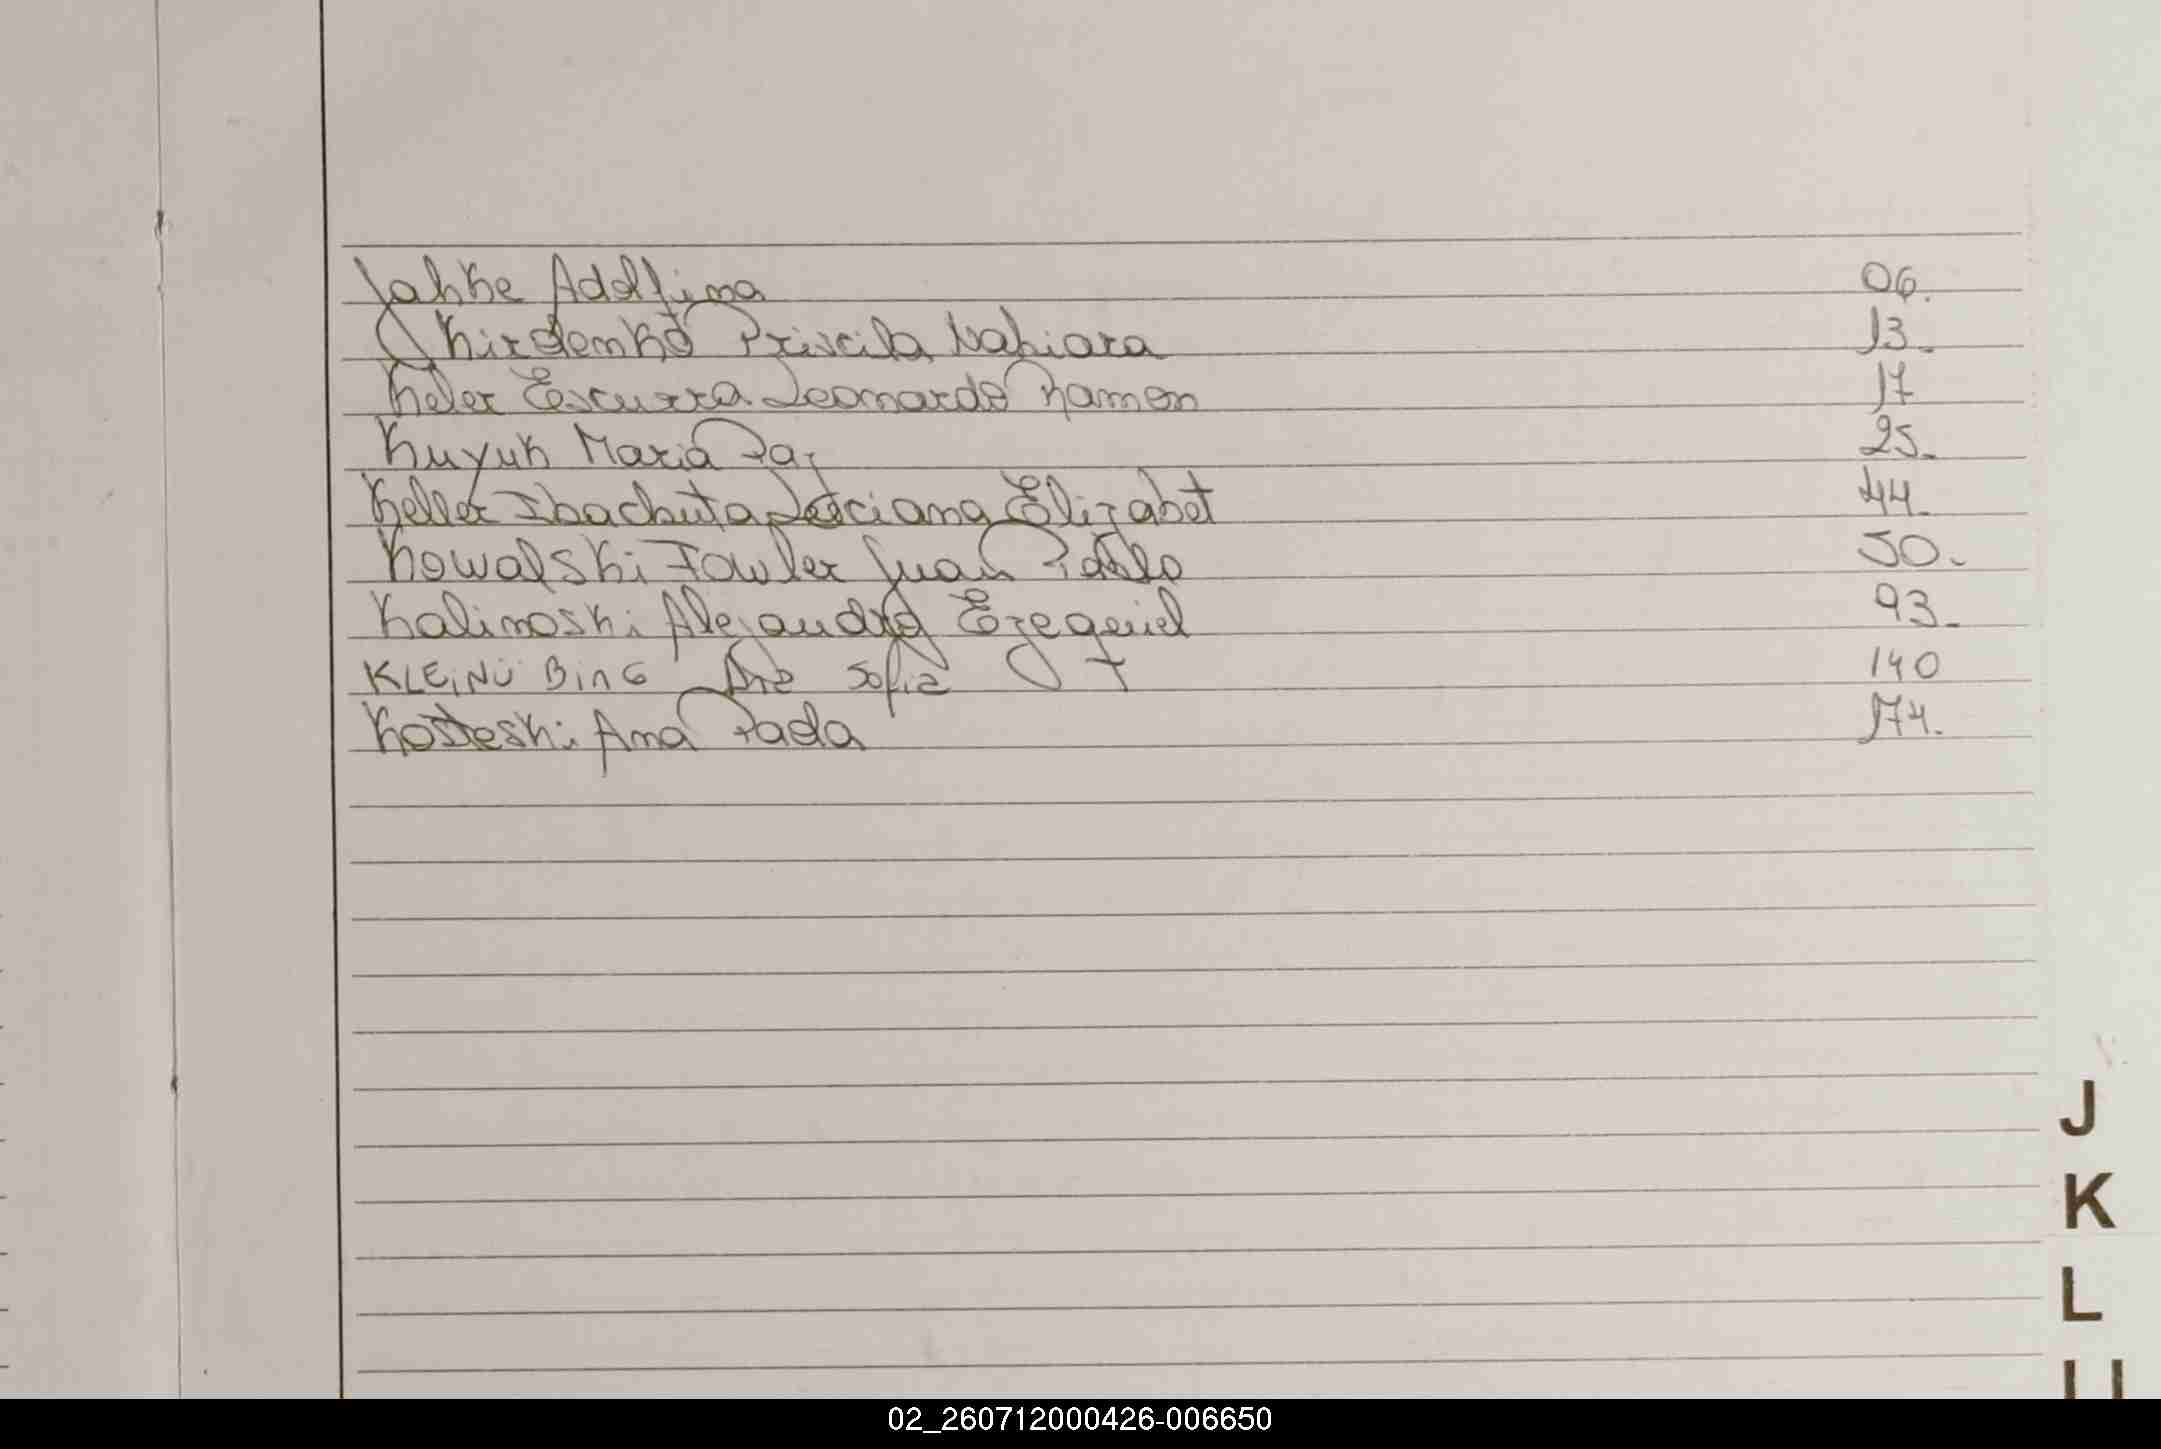 Jahke Adolfina 06.
Kirdemko Priscila Nahiara 13.
Keler Escurra Leonardo Ramon 17
Kuyuk Maria Paz 25.
Keller Ibachuta Luciana Elizabet 44.
Kowalski Fowler Juan Pablo 50.
Kalinoski Alejandro Ezequiel 93.
KLEINÜBING Ana Sofia 140
Kosteski Ana Paola 174.
J
K
L
02_260712000426-006650